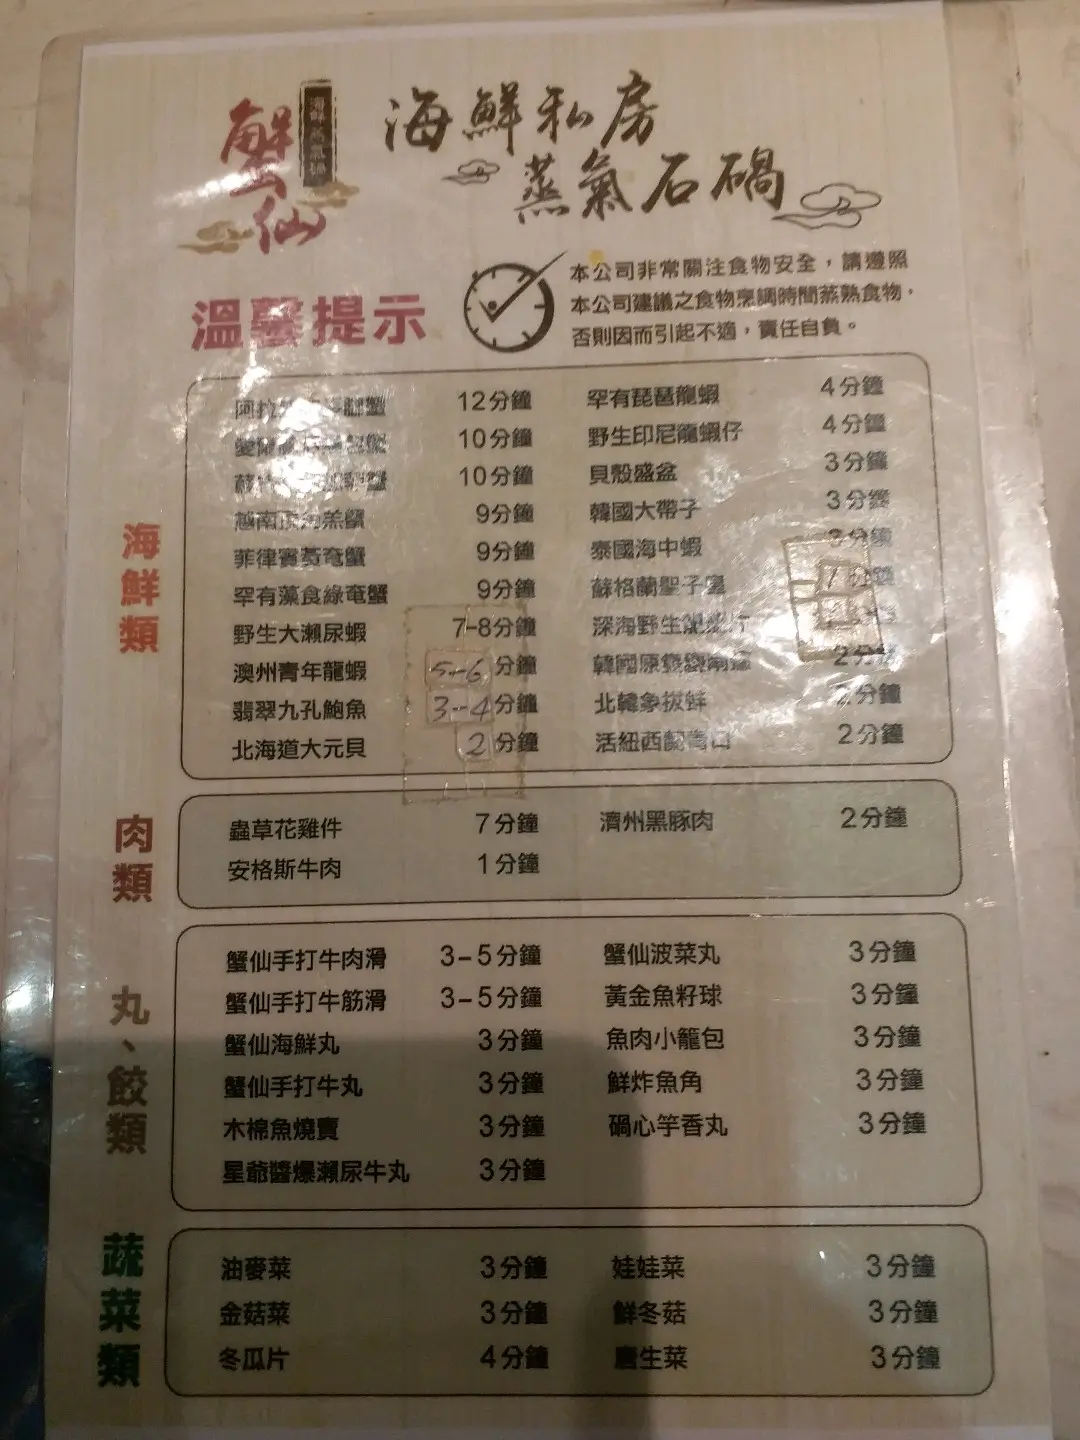 蟹仙
海鮮私房
蒸氣石鍋
溫馨提示
本公司非常關注食物安全，請遵照
本公司建議之食物烹調時間蒸熟食物，
否則因而引起不適，責任自負。
海鮮類
阿拉 蟹 12分鐘 罕有琵琶龍蝦 4分鐘
10分鐘 野生印尼龍蝦仔 4分鐘
蟹 10分鐘 貝殼盛盆 3分鐘
越南 羔蟹 9分鐘 韓國大帶子 3分鐘
菲律賓 奄蟹 9分鐘 泰國海中蝦 3分鐘
罕有藻食綠奄蟹 9分鐘 蘇格蘭聖子皇 分鐘
野生大瀨尿蝦 7-8分鐘 深海野生 片
澳州青年龍蝦 5--6分鐘 韓國原 2分鐘
翡翠九孔鮑魚 3--4分鐘 北韓象拔蚌 2分鐘
北海道大元貝 2分鐘 活紐西 青口 2分鐘
肉類
蟲草花雞件 7分鐘 濟州黑豚肉 2分鐘
安格斯牛肉 1分鐘
丸、餃類
蟹仙手打牛肉滑 3-5分鐘 蟹仙菠菜丸 3分鐘
蟹仙手打牛筋滑 3-5分鐘 黃金魚籽球 3分鐘
蟹仙海鮮丸 3分鐘 魚肉小籠包 3分鐘
蟹仙手打牛丸 3分鐘 鮮炸魚角 3分鐘
木棉魚燒賣 3分鐘 鍋心竽香丸 3分鐘
星爺醬爆瀨尿牛丸 3分鐘
蔬菜類
油麥菜 3分鐘 娃娃菜 3分鐘
金菇菜 3分鐘 鮮冬菇 3分鐘
冬瓜片 4分鐘 唐生菜 3分鐘